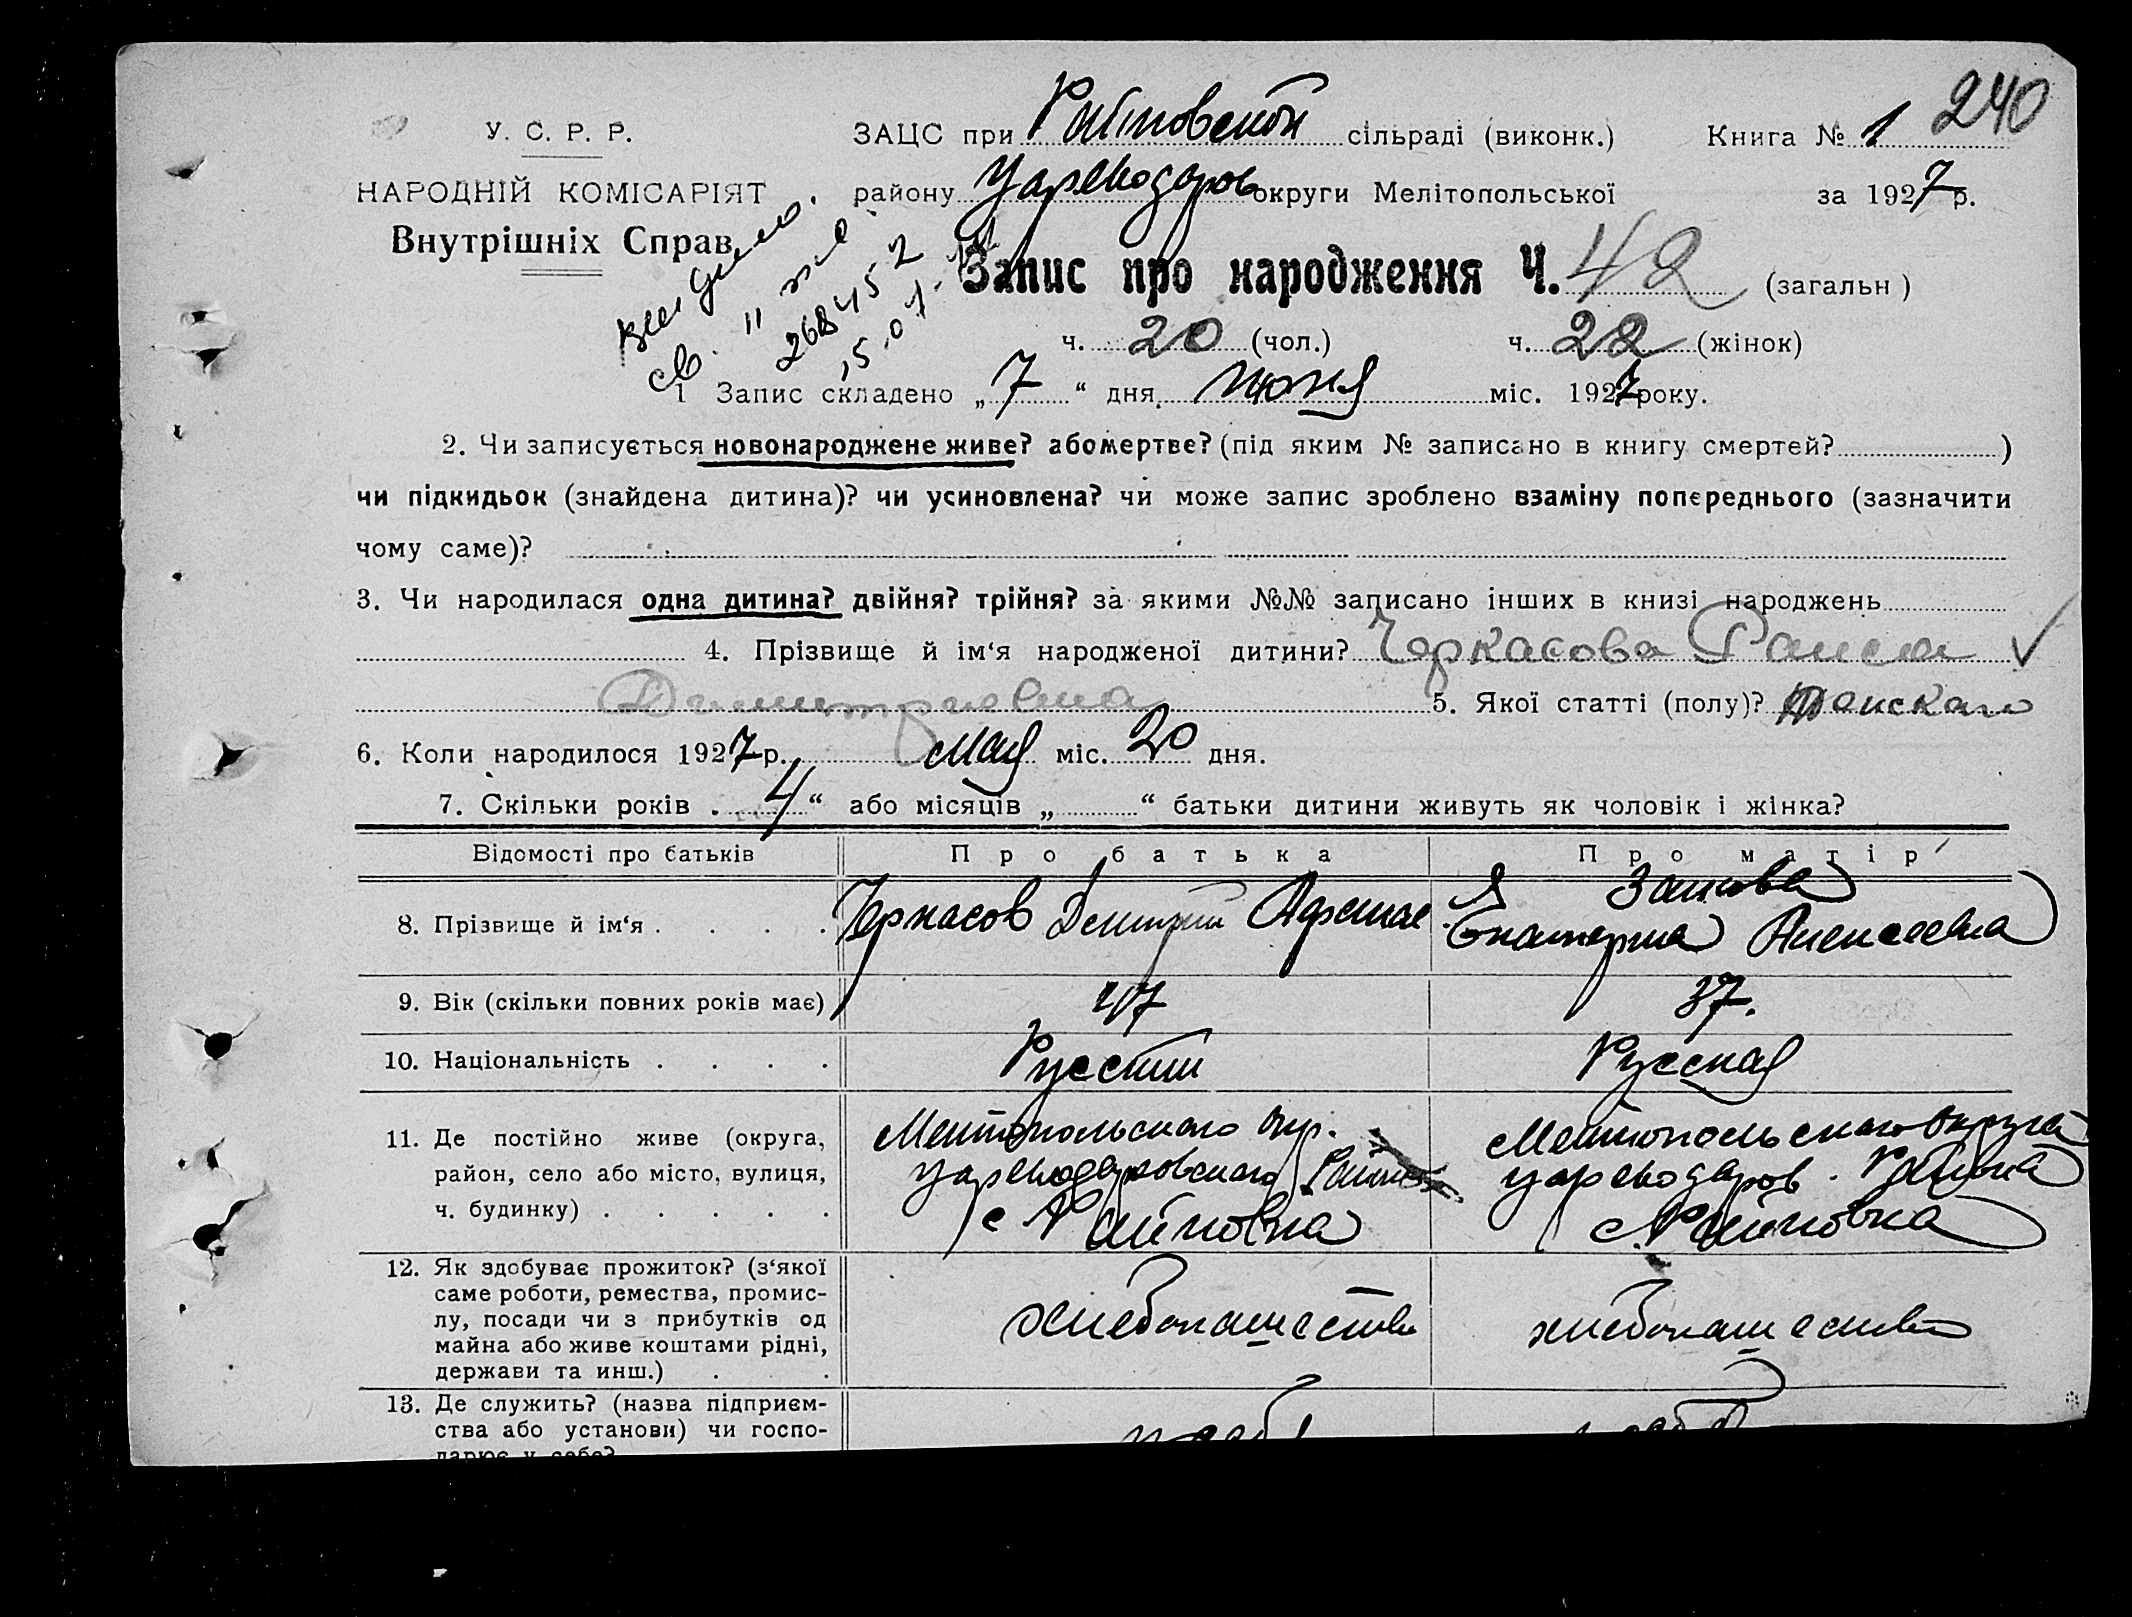 240
У. С. Р. Р. ЗАЦС при Райновской сільраді (виконк.) Книга № 1
НАРОДНІЙ КОМІСАРІЯТ району Цареводаров округи Мелітопольської за 1927 р.
Внутрішніх Справ
Запис про народження Ч. 42 (загальн)
св. 268452
ч. 20 (чол.) ч. 22 (жінок)
1 Запис складено „ 7 “ дня июня міс. 1927 року.
2. Чи записується новонароджене живе? або мертве? (під яким № записано в книгу смертей? )
чи підкидьок (знайдена дитина)? чи усиновлена? чи може запис зроблено взаміну попереднього (зазначити
чому саме)?
3. Чи народилася одна дитина? двійня? трійня? за якими №№ записано інших в книзі народжень
4. Прізвище й ім‘я народженої дитини? Черкасова Раиса
Дмитриевна 5. Якої статті (полу)? женскаго
6. Коли народилося 1927 р. мая міс. 20 дня.
7. Скільки років 4 “ або місяців „ “ батьки дитини живуть як чоловік і жінка?
Відомості про батьків Про батька Про матір
8. Прізвище й ім‘я . . . . Черкасов Дмитрий Екатерина Алексеевна
9. Вік (скільки повних років має) 47 37.
10. Національність . . . . Русский Русская
11. Де постійно живе (округа, Мелитопольскаго окр. Мелитопольскаго округа
район, село або місто, вулиця, Цареводаровскаго Района Цареводаров. Района
ч. будинку) . . . . . с Райновка с. Райновка
12. Як здобуває прожиток? (з‘якої
саме роботи, ремества, промис-
лу, посади чи з прибутків од хлебопашество хлебопашество
майна або живе коштами рідні,
держави та инш.) . .
13. Де служить? (назва підприєм-
ства або установи) чи госпо-
дарює у себе?